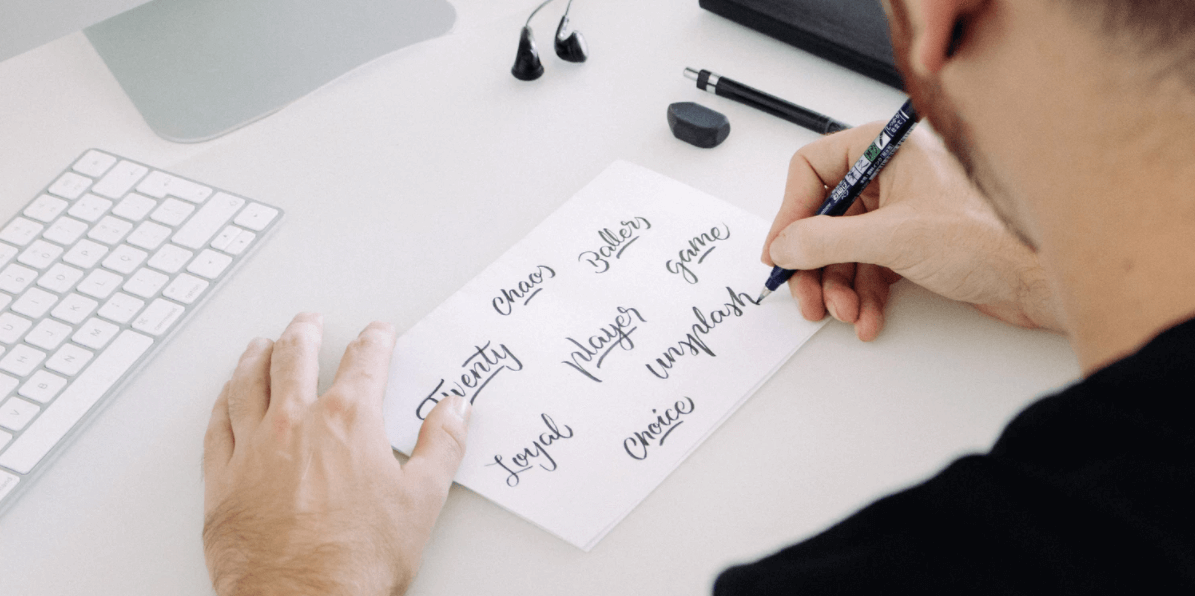 Chaos Ballers game
Twenty player unsplash
Loyal Choice